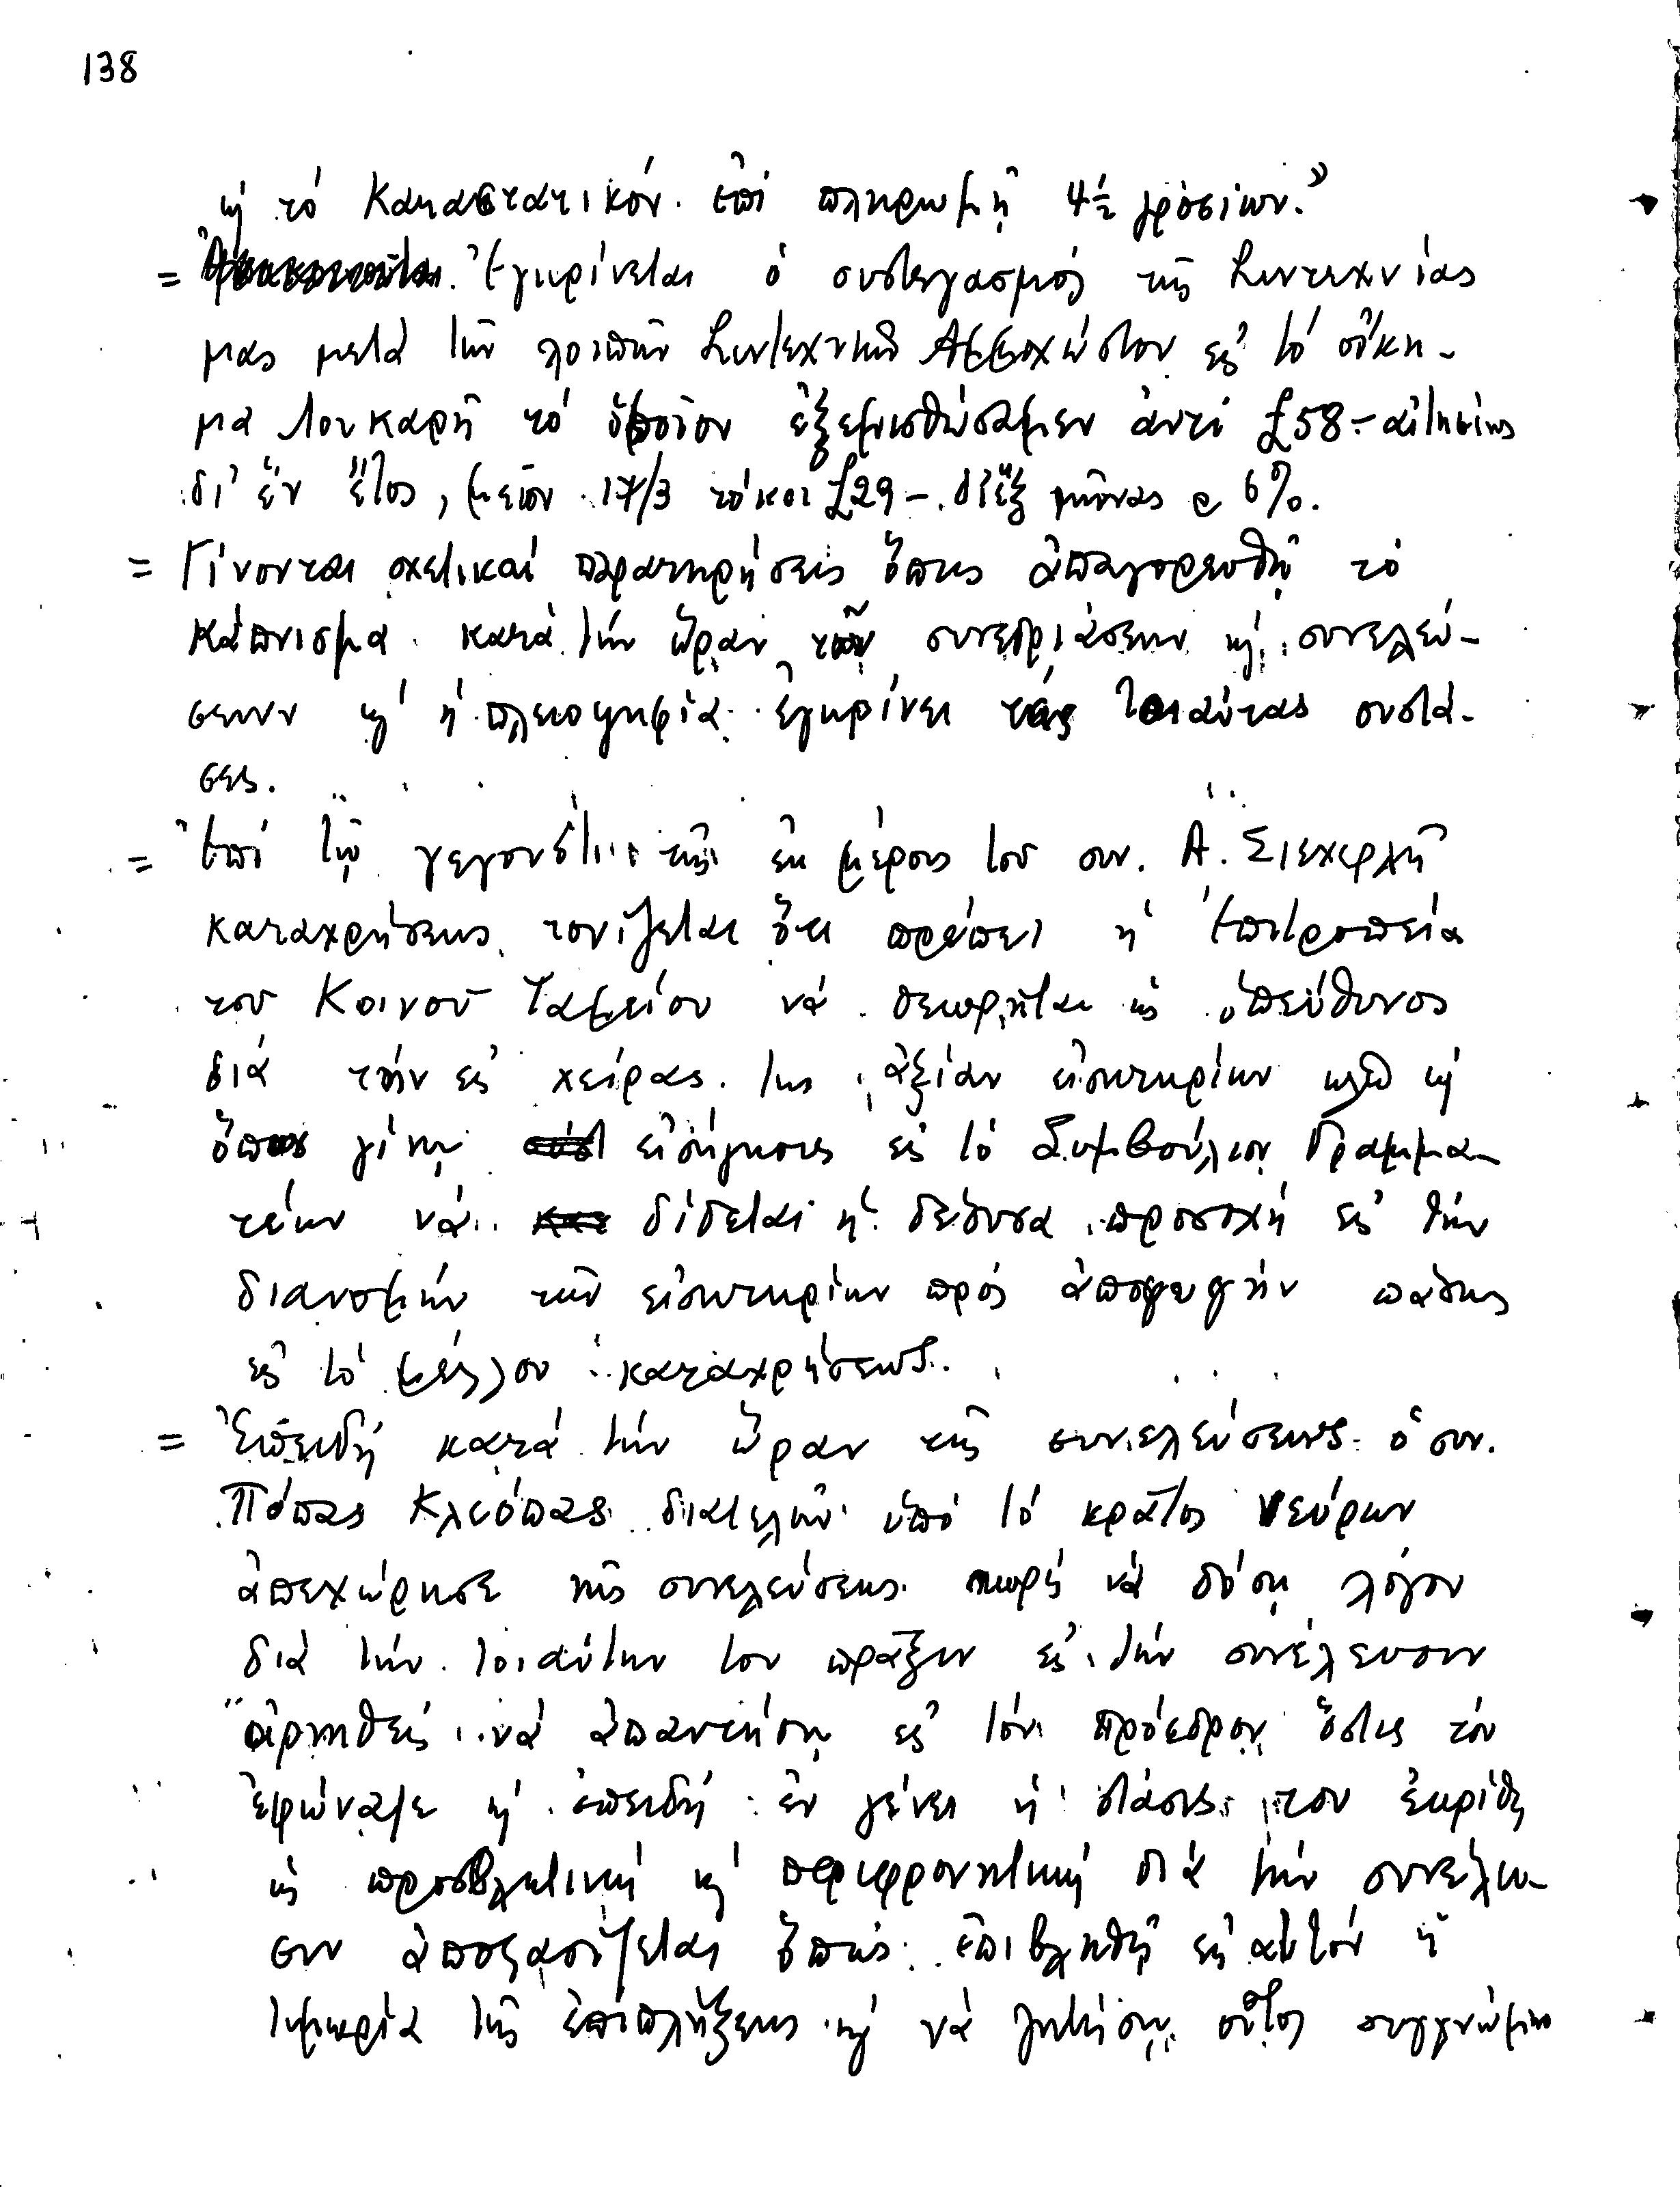 138
κ τό Καταστατικόν ἐπί πληρωμῇ 4½ γροσίων."
= Ἐγκρίνεται ὁ συστεγασμός τῆς Συντεχνίας
μας μετά τῶν λοιπῶν Συντεχνιῶν Ἀμμοχώστου εἰς τό οἴκη-
μα Λουκαρῆ τό ὁποῖον ἐξεμισθώσαμεν ἀντί £58.- αἰτησίως
δι' ἕν ἔτος, μεῖον 17/3 τόκοι £29-. δι' ἕξ μῆνας @ 6%.
= Γίνονται σχετικαί παρατηρήσεις ὅπως ἀπαγορευθῇ τό
κάπνισμα κατά τήν ὥραν τῶν συνεδριάσεων κ συνελεύ-
σεων κ ἡ πλειοψηφία ἐγκρίνει τάς τοιαύτας συστά-
σεις.
= Ἐπί τῷ γεγονότι τῆς ἐκ μέρους τοῦ συν. Α. Σιεχερλῆ
καταχρήσεως τονίζεται ὅτι πρέπει ἡ Ἐπιτροπεία
τοῦ Κοινοῦ Ταμείου νά θεωρῆται ὡς ὑπεύθυνος
διά τήν εἰς χεῖρας της ἀξίαν εἰσιτηρίων κλπ κ
ὅπως γίνῃ εἰσήγησις εἰς τό Συμβούλιον Γραμμα-
τέων νά δίδεται ἡ δέουσα προσοχή εἰς τήν
διανομήν τῶν εἰσιτηρίων πρός ἀποφυγήν πάσης
εἰς τό μέλλον καταχρήσεως.
= Ἐπειδή κατά τήν ὥραν τῆς συνελεύσεως ὁ συν.
Πόπας Κλεόπας διατελῶν ὑπό τό κράτος νεύρων
ἀπεχώρησε τῆς συνελεύσεως χωρίς νά δώσῃ λόγον
διά τήν τοιαύτην του πρᾶξιν εἰς τήν συνέλευσιν
ἀρνηθείς νά ἀπαντήσῃ εἰς τόν πρόεδρον ὅστις τόν
ἐφώναξε κ ἐπειδή ἐν γένει ἡ στάσις του ἐκρίθη
ὡς προσβλητική κ περιφρονητική διά τήν συνέλευ-
σιν ἀποφασίζεται ὅπως ἐπιβληθῇ εἰς αὐτόν ἡ
τιμωρία τῆς ἐπιπλήξεως κ νά ζητήσῃ οὗτος συγγνώμην